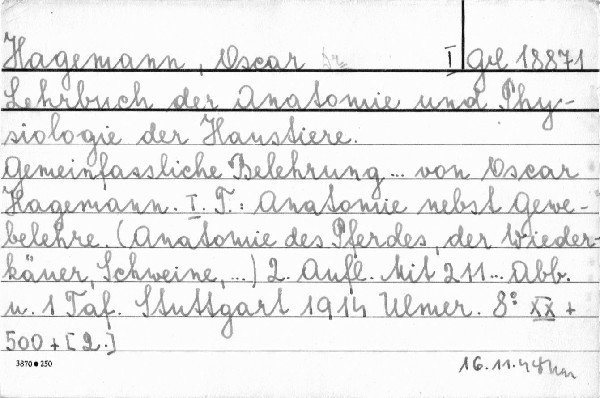 Hagemann, Oscar I Gd 18871
Lehrbuch der Anatomie und Phy-
siologie der Haustiere.
Gemeinfassliche Belehrung... von Oscar
Hagemann. I. T.: Anatomie nebst Gewe-
belehre. (Anatomie des Pferdes, der Wieder-
käuer, Schweine, ...) 2. Aufl. Mit 211... Abb.
u. 1 Taf. Stuttgart 1914 Ulmer. 8° XX +
500 + [2.]
3870 • 250 16.11.44